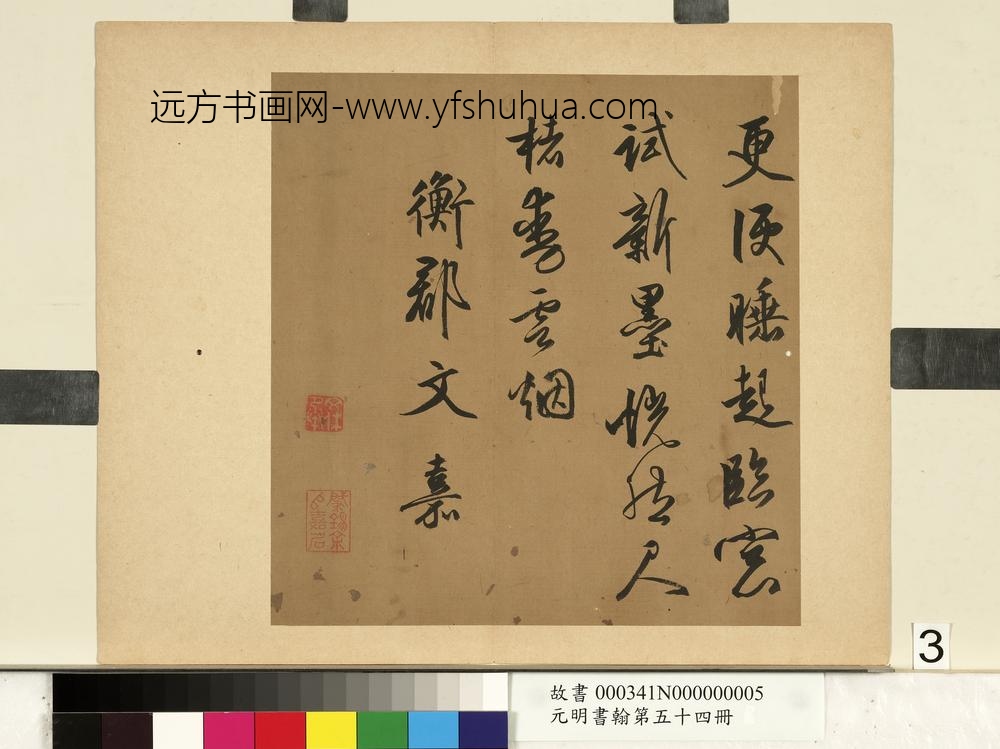 远方书画网-www.yfshuhua.com
更便睡起臨窗
試新墨恍然尺
楮雲烟
衡郡文嘉
肇錫余
以嘉名
3
故書 000341N000000005
元明書翰第五十四冊